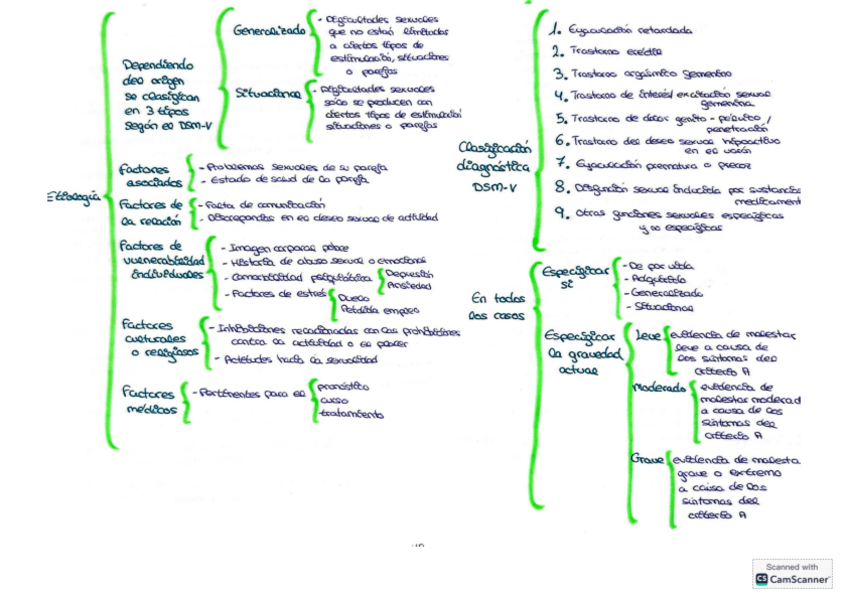 Etiología
Dependiendo
del origen
se clasifican
en 3 tipos
según el DSM-V
Generalizado
- Dificultades sexuales
que no están limitadas
a ciertos tipos de
estimulación, situaciones
o parejas
Situacional
- Dificultades sexuales
solo se producen con
ciertos tipos de estimulación
situaciones o parejas
Factores
asociados
- Problemas sexuales de su pareja
- Estado de salud de la pareja
Factores de
la relación
- Falta de comunicación
- Discrepancias en el deseo sexual de actividad
Factores de
vulnerabilidad
individuales
- Imagen corporal pobre
- Historia de abuso sexual o emocional
- Comorbilidad psiquiátrica
Depresión
Ansiedad
- Factores de estrés
Duelo
Pérdida empleo
Factores
culturales
o religiosos
- Inhibiciones relacionadas con las prohibiciones
contra la actividad o el placer
- Actitudes hacia la sexualidad
Factores
médicos
- Pertinentes para el
pronóstico
curso
tratamiento
Clasificación
diagnóstica
DSM-V
1. Eyaculación retardada
2. Trastorno eréctil
3. Trastorno orgásmico femenino
4. Trastorno de interés/excitación sexual
femenina
5. Trastorno de dolor genito-pélvico /
penetración
6. Trastorno del deseo sexual hipoactivo
en el varón
7. Eyaculación prematura o precoz
8. Disfunción sexual inducida por sustancias
medicament
9. Otras funciones sexuales específicas
y no específicas
En todos
los casos
Especificar
si
- De por vida
- Adquirida
- Generalizado
- Situacional
Especificar
la gravedad
actual
Leve
evidencia de malestar
leve a causa de
los síntomas del
criterio A
Moderado
evidencia de
malestar moderad
a causa de los
síntomas del
criterio A
Grave
evidencia de malesta
grave o extremo
a causa de los
síntomas del
criterio A
Scanned with
CS CamScanner